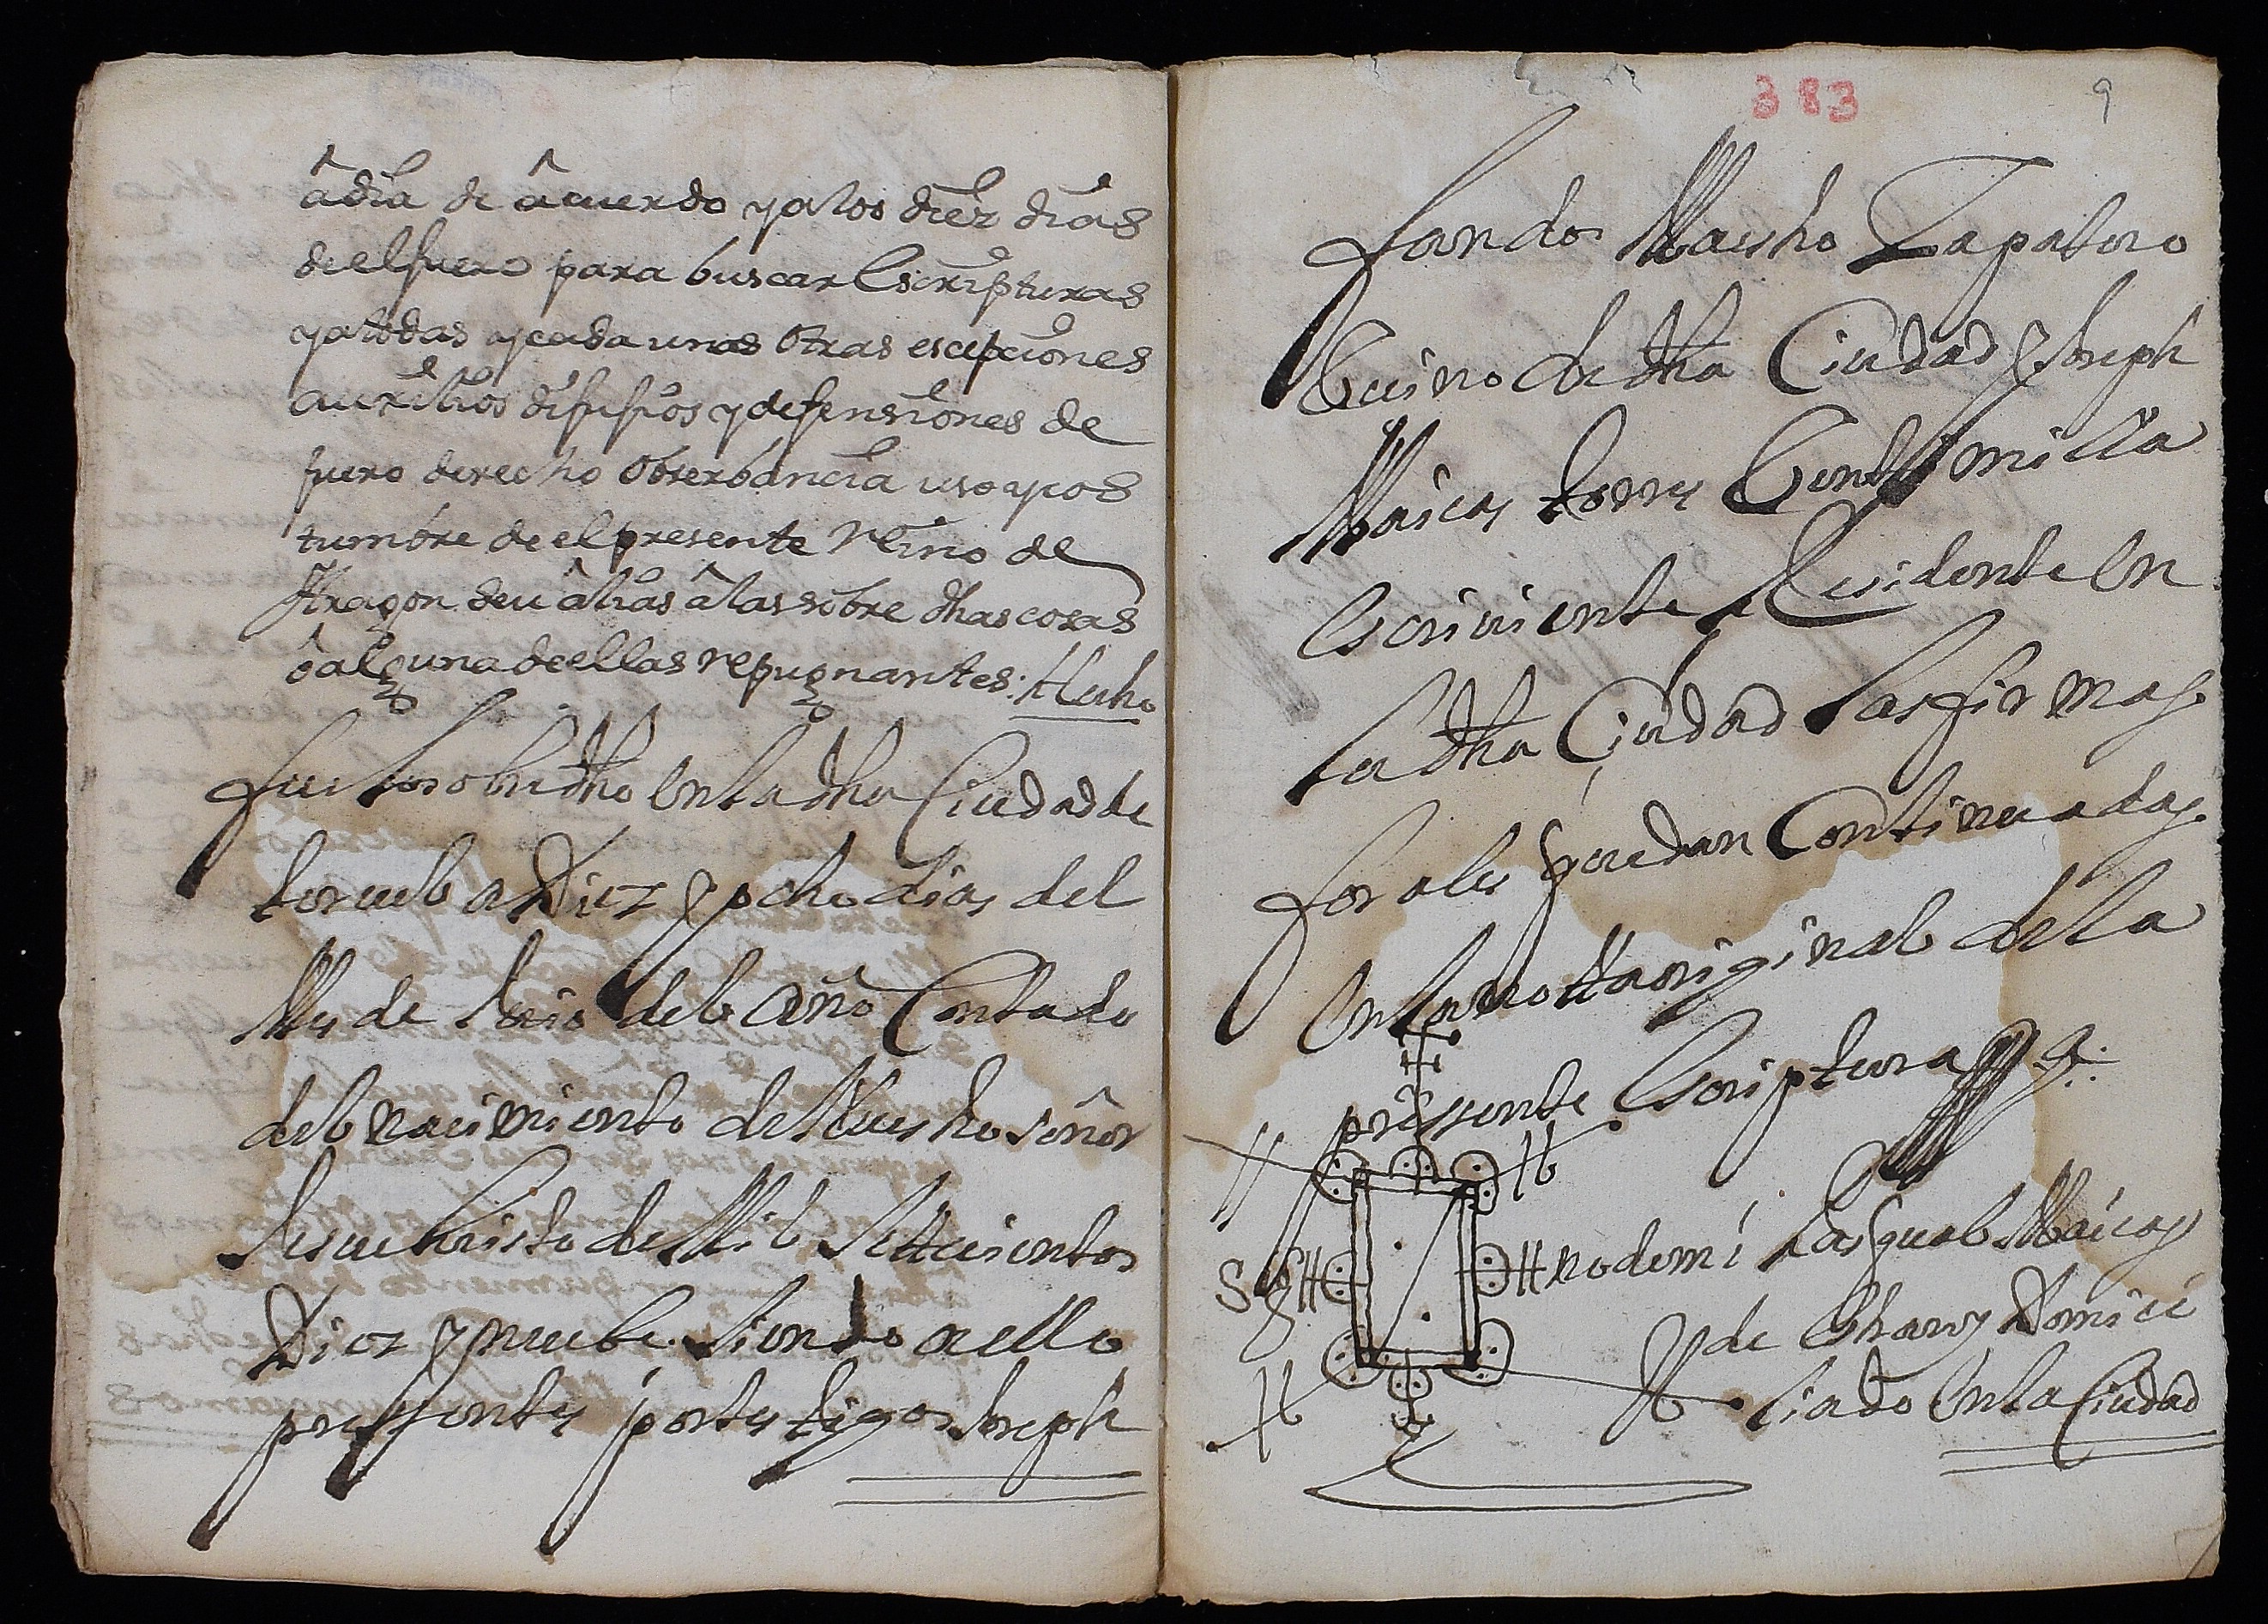 â dia de âcuerdo y a los diez dias
de el fuero para buscar Escripturas
y a todas y cada unas otras escepciones
auxilios difusios y defensiones de
fuero derecho obserbancia uso y cos
tumbre de el presente Reino de
Aragon seu âlias â las sobre dhas cosas
ô alguna de ellas repugnantes: Hecho
fue lo sobre dho en la dha Ciudad de
teruel a Diez y ocho dias del
Mes de Julio del año Contado
del nacimiento de Nuestro señor
Jesu Christo de Mil Settecientos
Diez y nuebe. Siendo a ello
pressentes por testigos Joseph
383 9
Maestro Zapatero
Vecino de dha Ciudad y Joseph
Maicas torres Veintemilla
Escriviente Residente En
la dha Ciudad las firmas
forales quedan Continuadas
En la notta original de la
pressente Escriptura
Sig no de mi Pasqual Maicas
de Domici
liado En la Ciudad